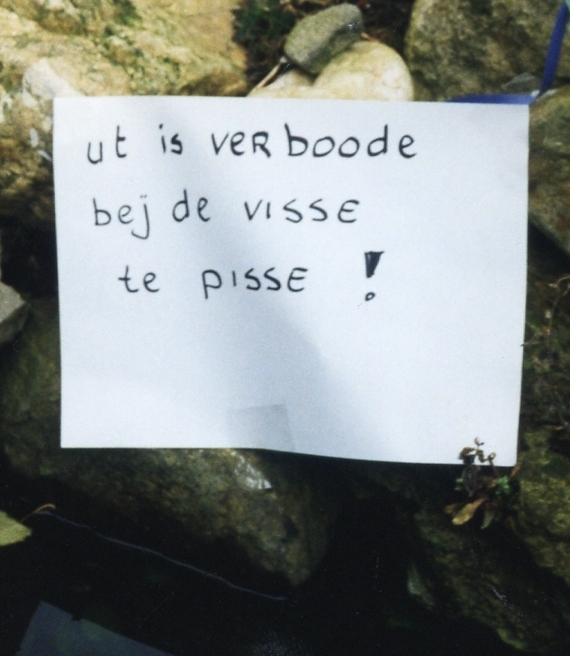 ut is verboode
beij de visse
te pisse !